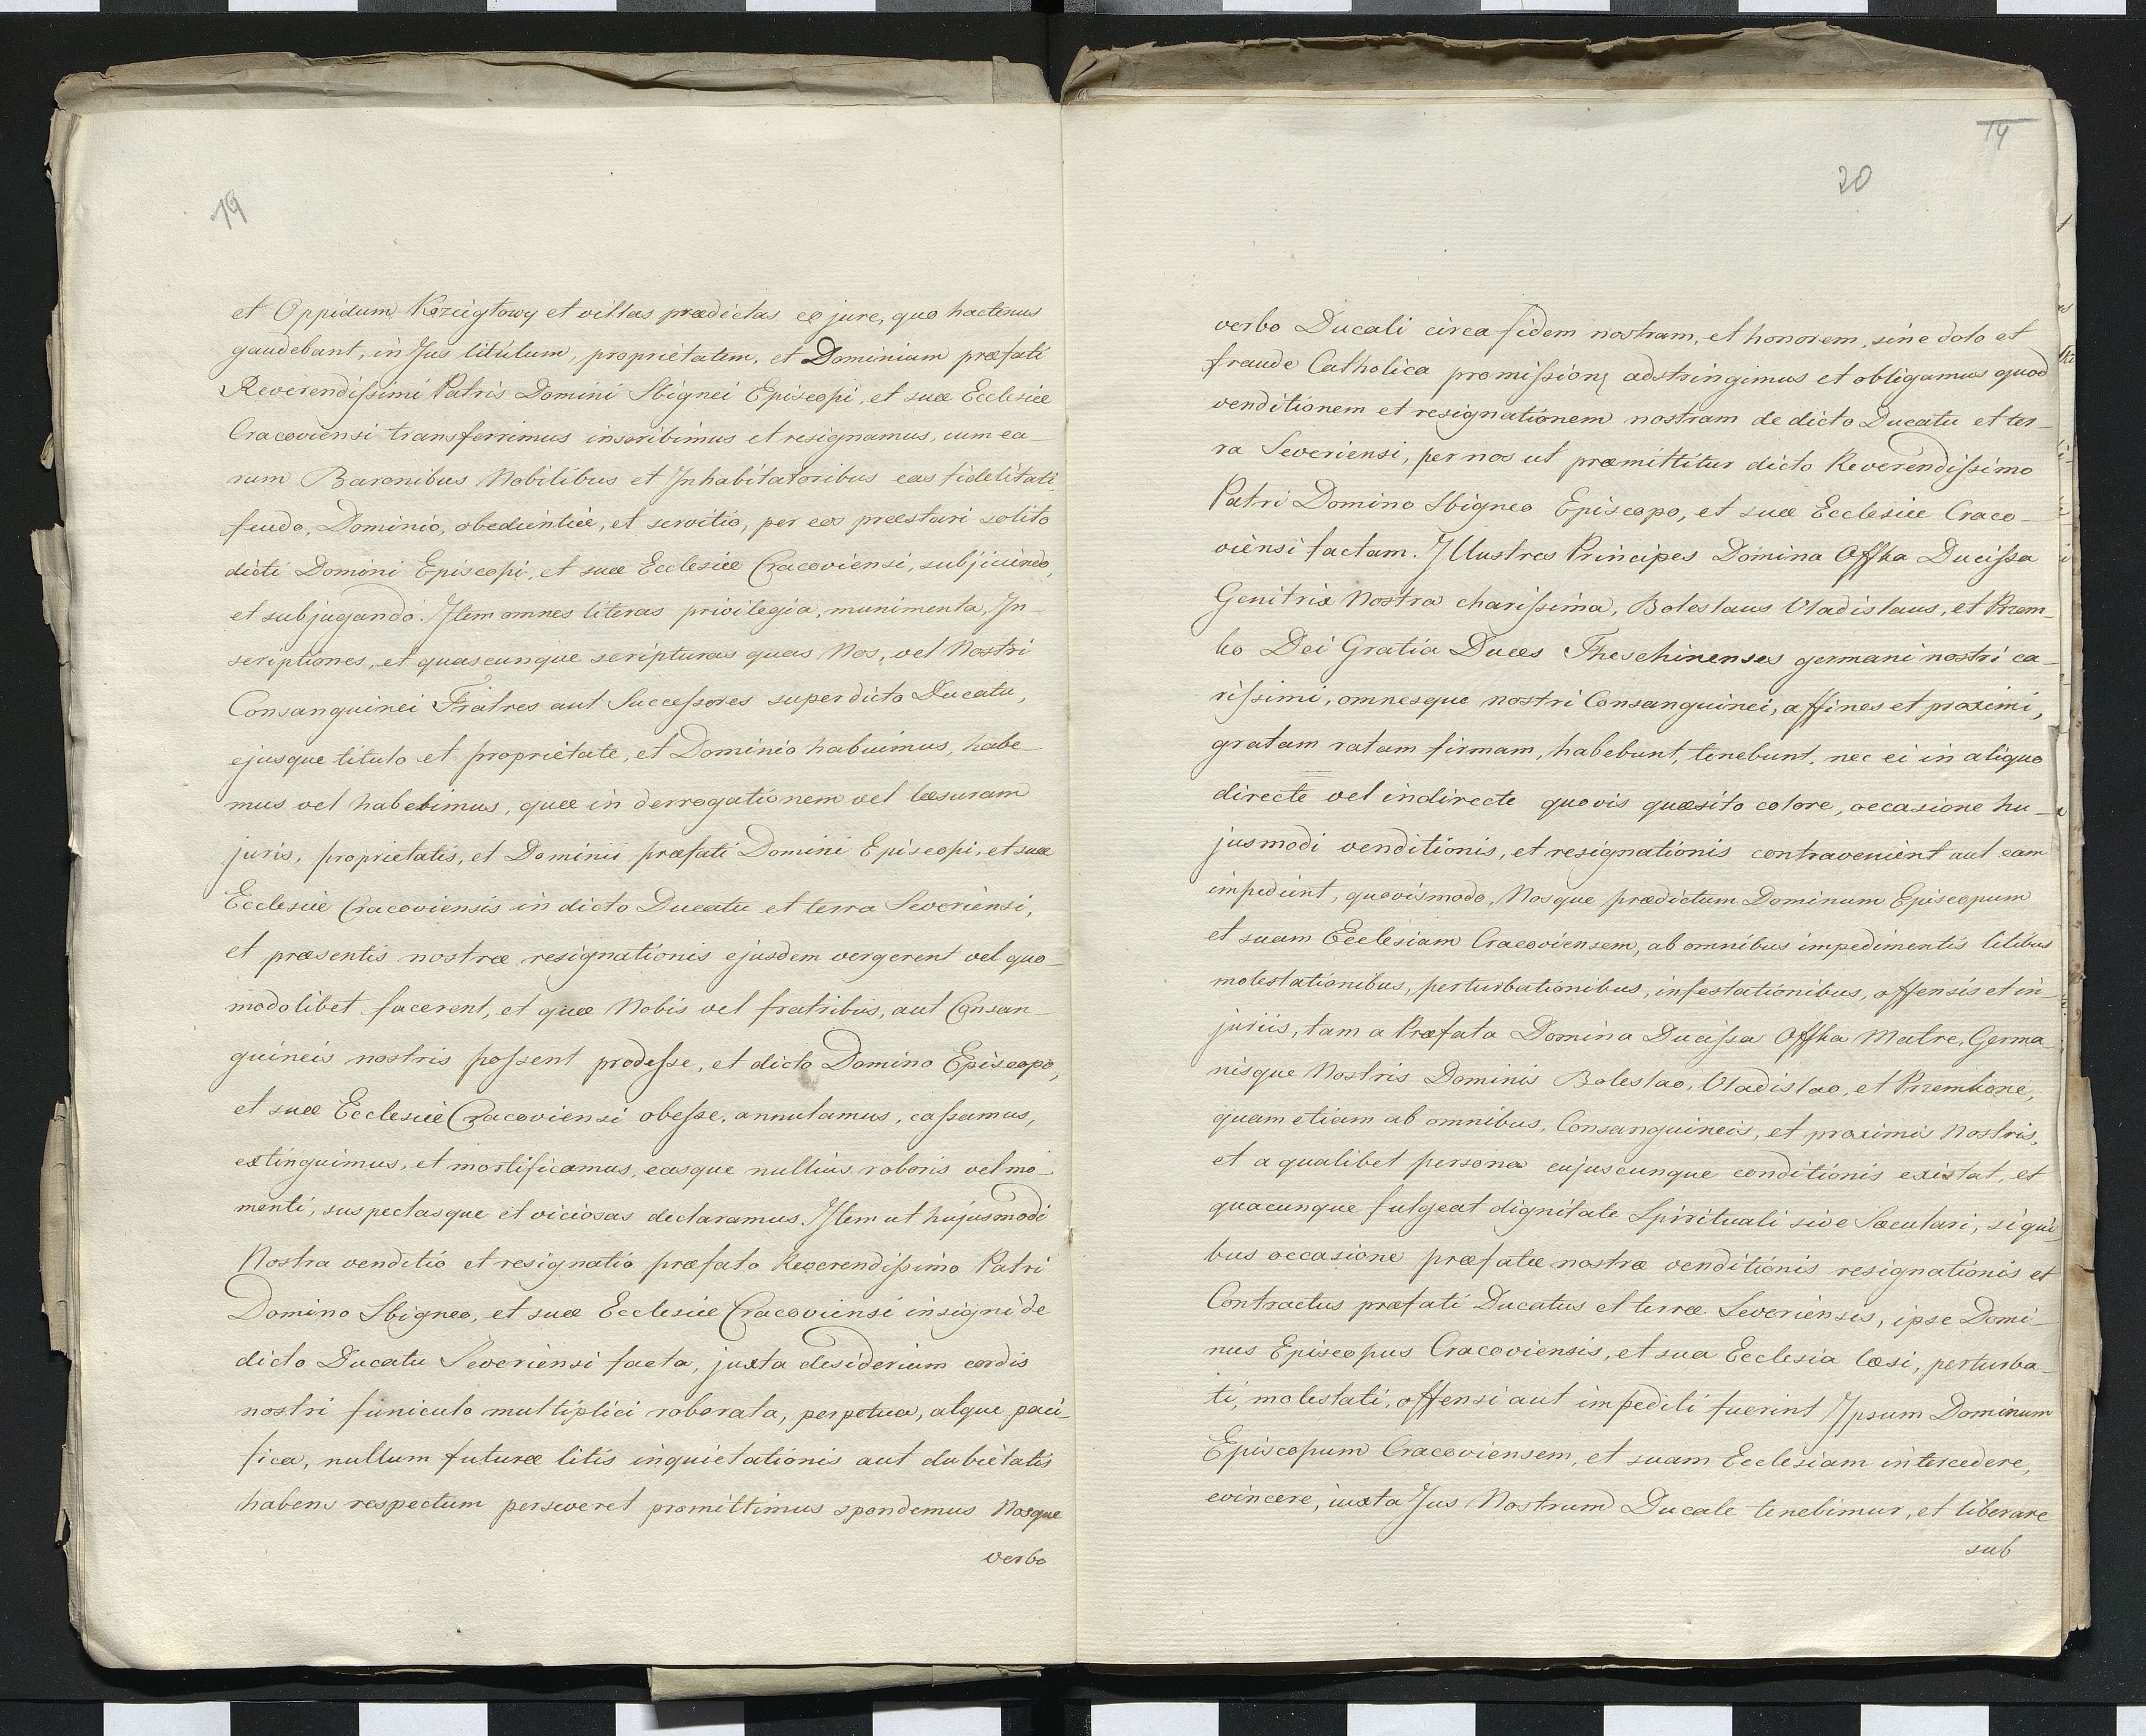 19
et Oppidum Kozieglowy et villas prædictas eo jure, quo hactenus
gaudebant, in Jus titulum, proprietatem, et Dominium præfati
Reverendissimi Patris Domini Sbignei Episcopi, et suæ Ecclesiæ
Cracoviensi transferrimus inscribimus et resignamus, cum ea-
rum Baronibus Nobilibus et Inhabitatoribus eas fidelitati
feudo, Dominio, obedientiæ, et servitio, per eos præstari solito
dicti Domini Episcopi, et suæ Ecclesiæ Cracoviensi, subjiciendo,
et subjugando. Item omnes literas privilegia, munimenta, In-
scriptiones, et quascunque scripturas quas Nos, vel Nostri
Consanguinei Fratres aut Successores super dicto Ducatu,
ejusque titulo et proprietate, et Dominio habuimus, habe-
mus vel habebimus, quæ in derrogationem vel læsuram
juris, proprietatis, et Dominii præfati Domini Episcopi, et suæ
Ecclesiæ Cracoviensis in dicto Ducatu et terra Severiensi,
et præsentis nostræ resignationis ejusdem vergerent vel quo-
modolibet facerent, et quæ Nobis vel fratribus, aut Consan-
guineis nostris possent prodesse, et dicto Domino Episcopo,
et suæ Ecclesiæ Cracoviensi obesse, annulamus, cassamus,
extinguimus, et mortificamus, easque nullius roboris vel mo-
menti, suspectasque et viciosas declaramus. Item ut hujusmodi
Nostra venditio et resignatio præfato Reverendissimo Patri
Domino Sbigneo, et suæ Ecclesiæ Cracoviensi insigni de
dicto Ducatu Severiensi facta, juxta desiderium cordis
nostri funiculo multiplici roborata, perpetua, atque paci-
fica, nullum futuræ litis inquietationis aut dubietatis
habens respectum perseveret promittimus spondemus Nosque
verbo
14
20
verbo Ducali circa fidem nostram, et honorem, sine dolo et
fraude Catholica promissione adstringimus et obligamus quod
venditionem et resignationem nostram de dicto Ducatu et ter-
ra Severiensi, per nos ut præmittitur dicto Reverendissimo
Patri Domino Sbigneo Episcopo, et suæ Ecclesiæ Craco-
viensi factam. Illustres Principes Domina Offka Ducissa
Genitrix Nostra charissima, Boleslaus Vladislaus, et Przem-
ko Dei Gratia Duces Theschinenses germani nostri ca-
rissimi, omnesque nostri Consanguinei, affines et proximi,
gratam ratam firmam, habebunt, tenebunt, nec ei in aliquo
directe vel indirecte quovis quæsito colore, occasione hu-
jusmodi venditionis, et resignationis contravenient aut eam
impedient, quovismodo, Nosque prædictum Dominum Episcopum
et suam Ecclesiam Cracoviensem, ab omnibus impedimentis litibus
molestationibus, perturbationibus, infestationibus, offensis et in-
juriis, tam a Præfata Domina Ducissa Offka Matre, Germa-
nisque Nostris Dominis Boleslao, Vladislao, et Przemkone,
quam etiam ab omnibus, Consanguineis, et proximis Nostris,
et a qualibet persona cujuscunque conditionis existat, et
quacunque fulgeat dignitate Spirituali sive Sæculari, si qui-
bus occasione præfatæ nostræ venditionis resignationis et
Contractus præfati Ducatus et terræ Severiensis, ipse Domi-
nus Episcopus Cracoviensis, et sua Ecclesia læsi, perturba-
ti, molestati, offensi aut impediti fuerint Ipsum Dominum
Episcopum Cracoviensem, et suam Ecclesiam intercedere,
evincere, iuxta Jus Nostrum Ducale tenebimur, et liberare
sub